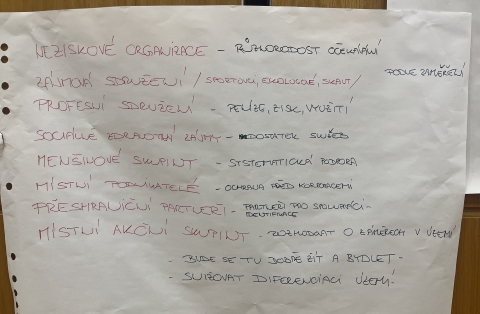 NEZISKOVÉ ORGANIZACE - RŮZNORODOST OČEKÁVÁNÍ
PODLE ZAMĚŘENÍ
ZÁJMOVÁ SDRUŽENÍ /SPORTOVCI, EKOLOGOVÉ, SKAUT/
PROFESNÍ SDRUŽENÍ - PENÍZE, ZISK, VYUŽITÍ
SOCIÁLNĚ ZDRAVOTNÍ ZÁJMY - DOSTATEK SLUŽEB
MENŠINOVÉ SKUPINY - SYSTEMATICKÁ PODPORA
MÍSTNÍ PODNIKATELÉ - OCHRANA PŘED KORPORACEMI
PŘESHRANIČNÍ PARTNEŘI - PARTNEŘI PRO SPOLUPRÁCI -
IDENTIFIKACE
MÍSTNÍ AKČNÍ SKUPINY - ROZHODOVAT O ZÁMĚRECH V ÚZEMÍ
- BUDE SE TU DOBŘE ŽÍT A BYDLET -
- SNIŽOVAT DIFERENCIACI ÚZEMÍ -